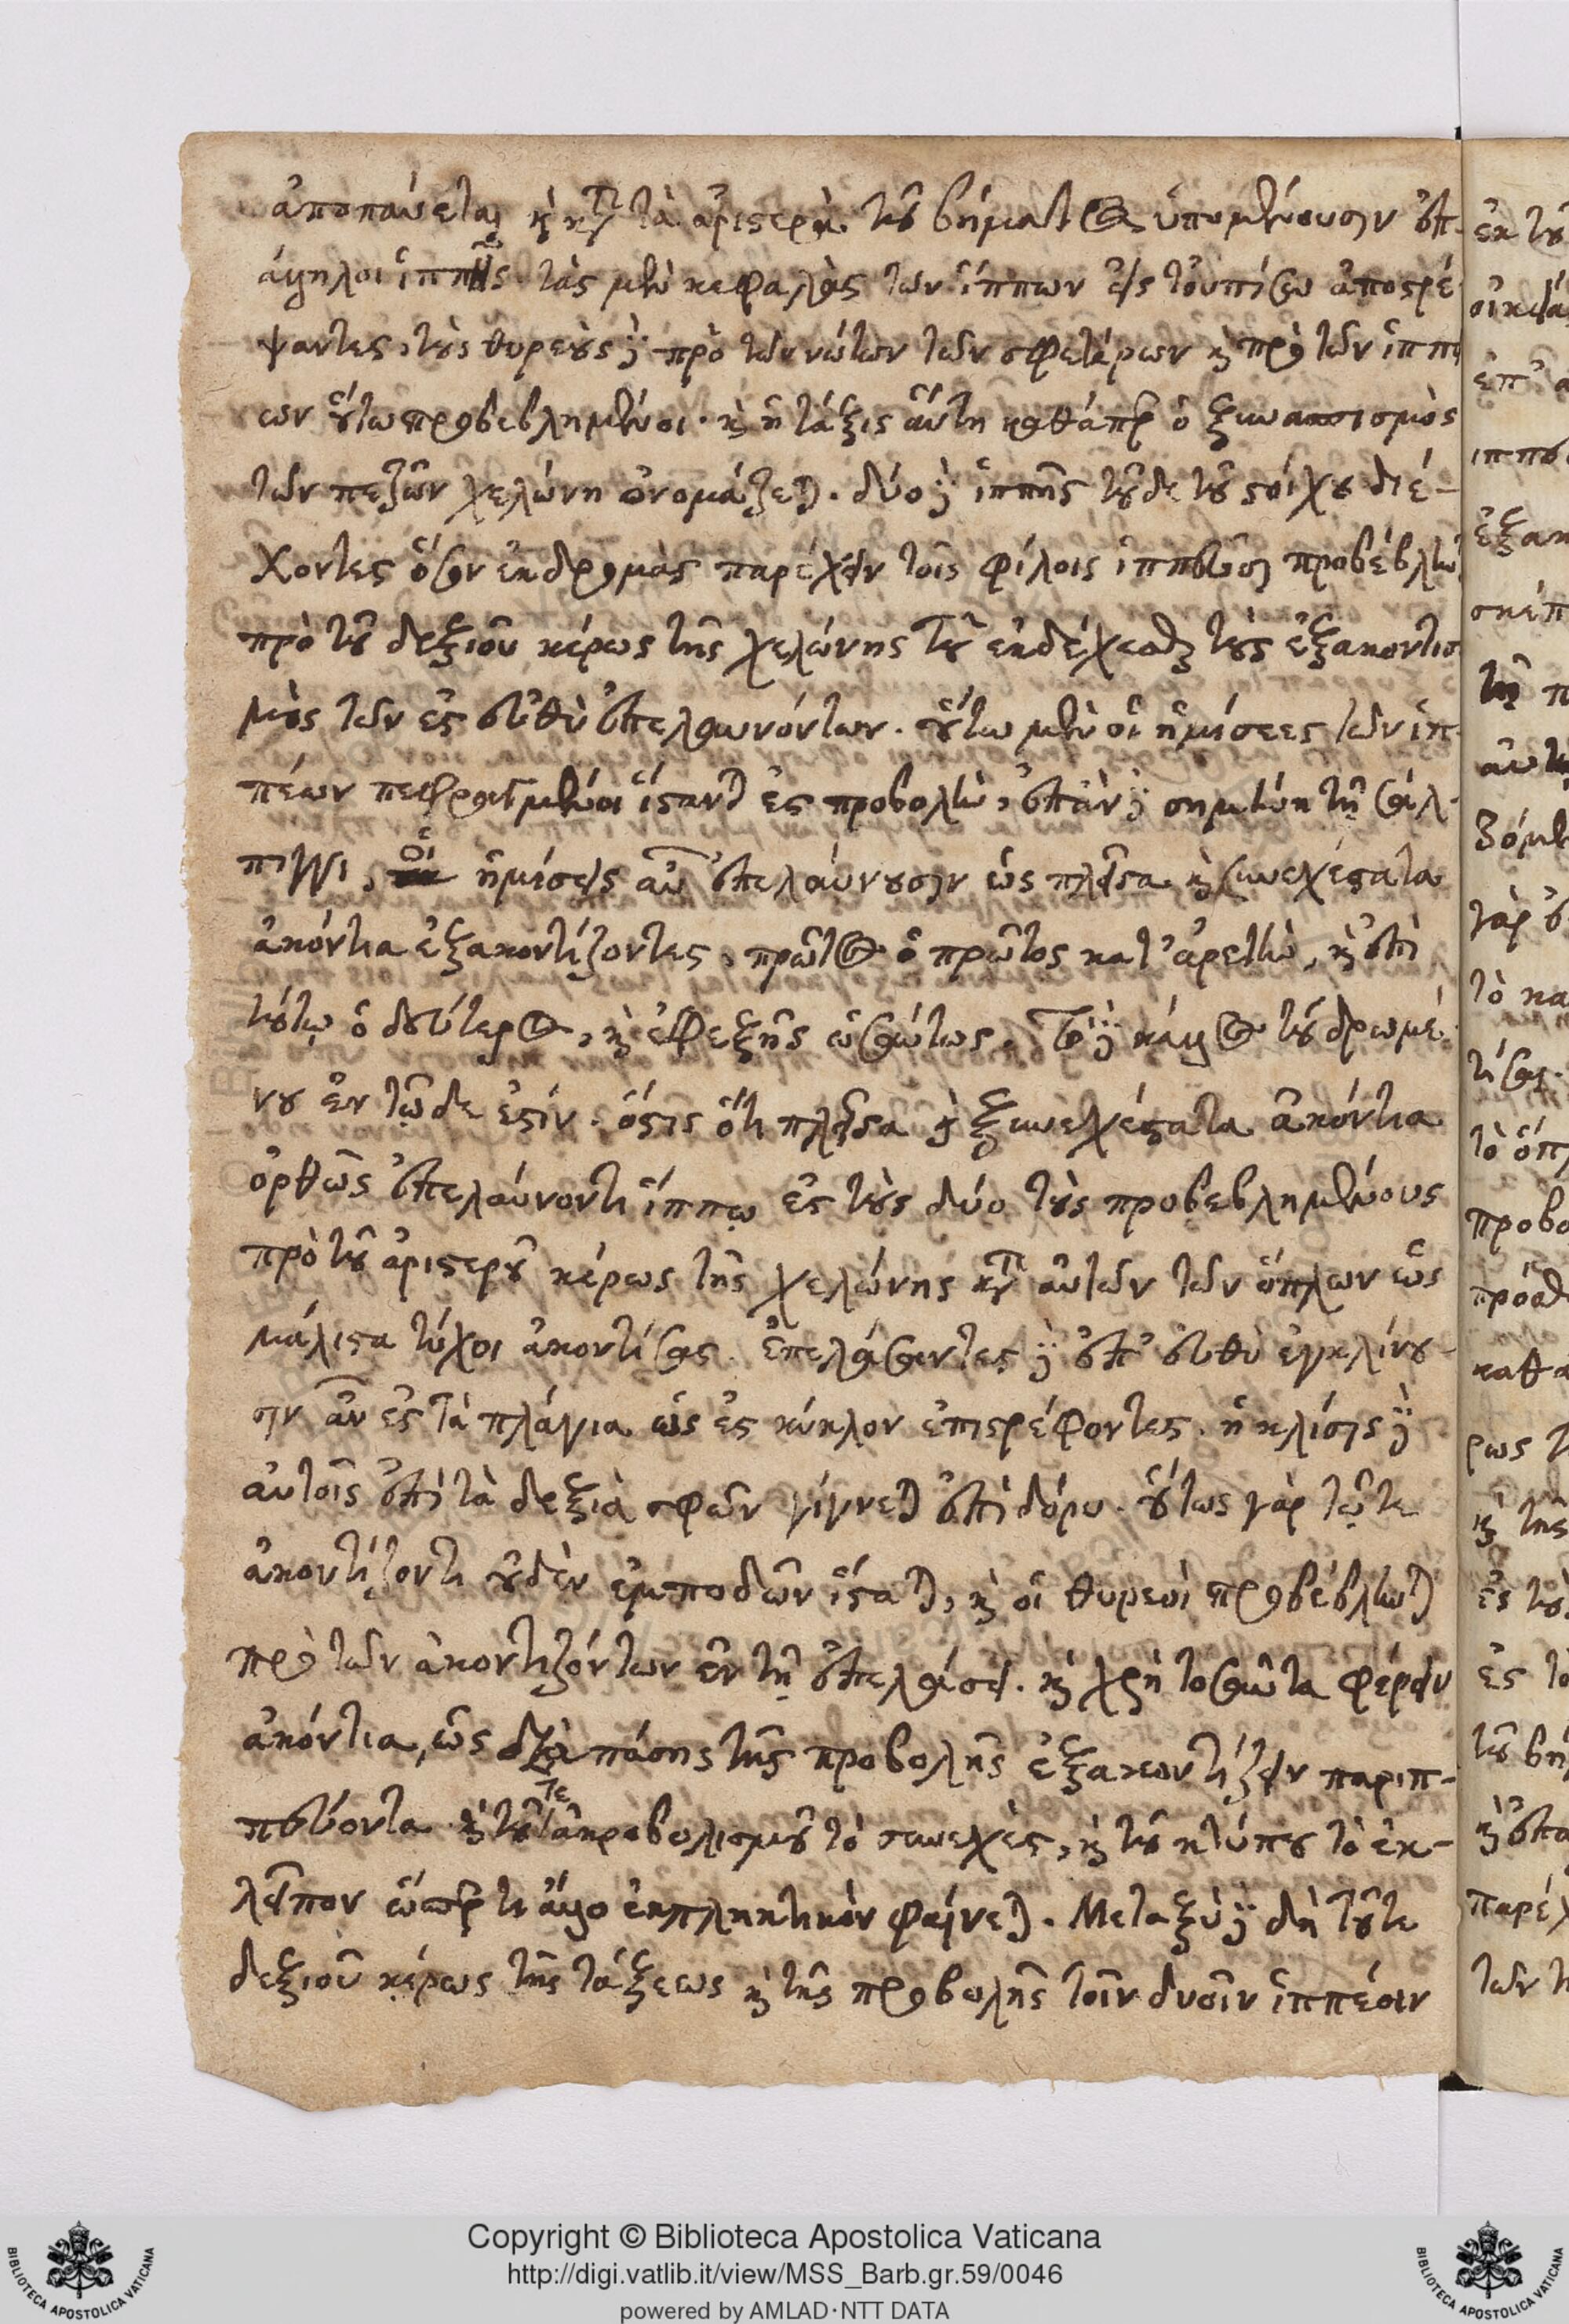 ἀποπαύεται καὶ κατὰ τὰ ἀριστερὰ τοῦ βήματος ὑπομένουσιν ἐπ-
άλληλοι ἱππῆς· τὰς μὲν κεφαλὰς τῶν ἵππων εἰς τοὐπίσω ἀποστρέ-
ψαντες, τοὺς θυρεοὺς δὲ πρὸ τῶν νώτων τῶν σφετέρων καὶ πρὸ τῶν ἵππ
ων οὕτω προβεβλημένοι· καὶ ἡ τάξις αὕτη καθάπερ ὁ ξυνασπισμὸς
τῶν πεζῶν χελώνη ὀνομάζεται. δύο δὲ ἱππῆς τοῦδε τοῦ στοίχου διέ-
χοντες ὅσον ἐκδρομὰς παρέχειν τοῖς φίλοις ἱππεῦσι προβέβλην
πρὸ τοῦ δεξιοῦ κέρως τῆς χελώνης τοῦ ἐκδέχεσθαι τοὺς ἐξακοντισ
μοὺς τῶν ἐς εὐθὺ ἐπελαυνόντων. οὕτω μὲν οἱ ἡμίσεες τῶν ἱπ-
πέων πεφραγμένοι ἵστανται ἐς προβολὴν, ἐπὰν δὲ σημήνῃ τῇ σάλ-
πιγγι, οἱ ἡμίσεις αὖ ἐπελαύνουσιν ὡς πλεῖστα καὶ συνεχέστατα
ἀκόντια ἐξακοντίζοντες, πρῶτος ὁ πρῶτος κατ' ἀρετὴν, καὶ ἐπὶ
τούτῳ ὁ δεύτερος, καὶ ἐφεξῆς ὡσαύτως. τὸ δὲ κάλλος τοῦ δρωμέ-
νου ἐν τῷδε ἐστίν. ὅστις ὅτι πλεῖστα καὶ ξυνεχέστατα ἀκόντια
ὀρθῶς ἐπελαύνοντι ἵππῳ ἐς τοὺς δύο τοὺς προβεβλημένους
πρὸ τοῦ ἀριστεροῦ κέρως τῆς χελώνης κατ' αὐτῶν τῶν ὅπλων ὡς
μάλιστα τύχοι ἀκοντίσας. ἐπελάσαντες δὲ ἐπ' εὐθὺ ἐγκλίνου-
σιν αὖ ἐς τὰ πλάγια ὡς ἐς κύκλον ἐπιστρέφοντες. ἡ κλίσις δὲ
αὐτοῖς ἐπὶ τὰ δεξιὰ σφῶν γίγνεται ἐπὶ δόρυ. οὕτως γὰρ τῷ τε
ἀκοντίζοντι οὐδὲν ἐμποδὼν ἵσταται, καὶ οἱ θυρεοὶ προβέβληνται
πρὸ τῶν ἀκοντιζόντων ἐν τῇ ἐπελάσει. καὶ χρὴ τοσαῦτα φέρειν
ἀκόντια, ὡς διὰ πάσης τῆς προβολῆς ἐξακοντίζειν παριπ-
πεύοντα καὶ τοῦ τε ἀκροβολισμοῦ τὸ συνεχὲς, καὶ τοῦ κτύπου τὸ ἐκ-
λεῖπον ὥσπερ τι ἄλλο ἐκπληκτικὸν φαίνεται. Μεταξὺ δὲ δὴ τοῦ τε
δεξιοῦ κέρως τῆς τάξεως καὶ τῆς προβολῆς τοῖν δυοῖν ἱππέοιν
Copyright © Biblioteca Apostolica Vaticana
http://digi.vatlib.it/view/MSS_Barb.gr.59/0046
powered by AMLAD·NTT DATA